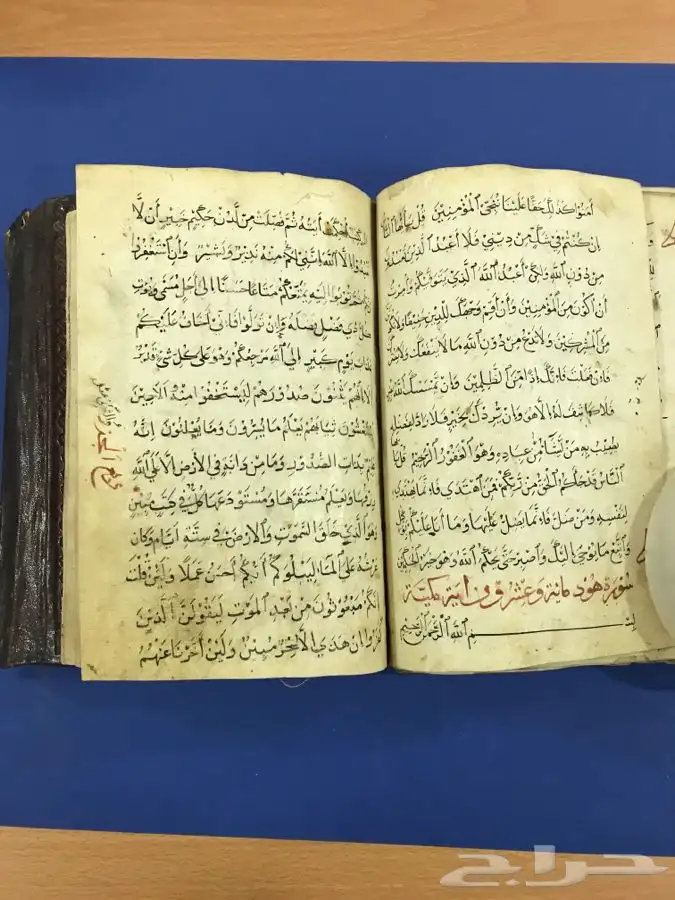 امنوا كذلك حقا علينا ننجي المؤمنين قل يايها الناس
ان كنتم في شك من ديني فلا اعبد الذين تعبدون
من دون الله ولكن اعبد الله الذي يتوفيكم وامرت
ان اكون من المؤمنين وان اقم وجهك للدين حنيفا ولا تكونن
من المشركين ولا تدع من دون الله ما لا ينفعك ولا يضرك
فان فعلت فانك اذا من الظلمين وان يمسسك الله بضر
فلا كاشف له الا هو وان يردك بخير فلا راد لفضله
يصيب به من يشاء من عباده وهو الغفور الرحيم قل يايها
الناس قد جاءكم الحق من ربكم فمن اهتدى فانما يهتدي
لنفسه ومن ضل فانما يضل عليها وما انا عليكم بوكيل
واتبع ما يوحى اليك واصبر حتى يحكم الله وهو خير الحكمين
سورة هود مائة وعشرون اية مكية
بسم الله الرحمن الرحيم
الر كتب احكمت ايته ثم فصلت من لدن حكيم خبير ان لا
تعبدوا الا الله انني لكم منه نذير وبشير وان استغفروا
ربكم ثم توبوا اليه يمتعكم متاعا حسنا الى اجل مسمى ويؤت
كل ذي فضل فضله وان تولوا فاني اخاف عليكم
عذاب يوم كبير الى الله مرجعكم وهو على كل شيء قدير
الا انهم يثنون صدورهم ليستخفوا منه الا حين
يستغشون ثيابهم يعلم ما يسرون وما يعلنون انه
عليم بذات الصدور وما من دابة في الارض الا على الله
رزقها ويعلم مستقرها ومستودعها كل في كتب مبين
وهو الذي خلق السموت والارض في ستة ايام وكان
عرشه على الماء ليبلوكم ايكم احسن عملا ولئن قلت
انكم مبعوثون من بعد الموت ليقولن الذين
كفروا ان هذا الا سحر مبين ولئن اخرنا عنهم
حراج